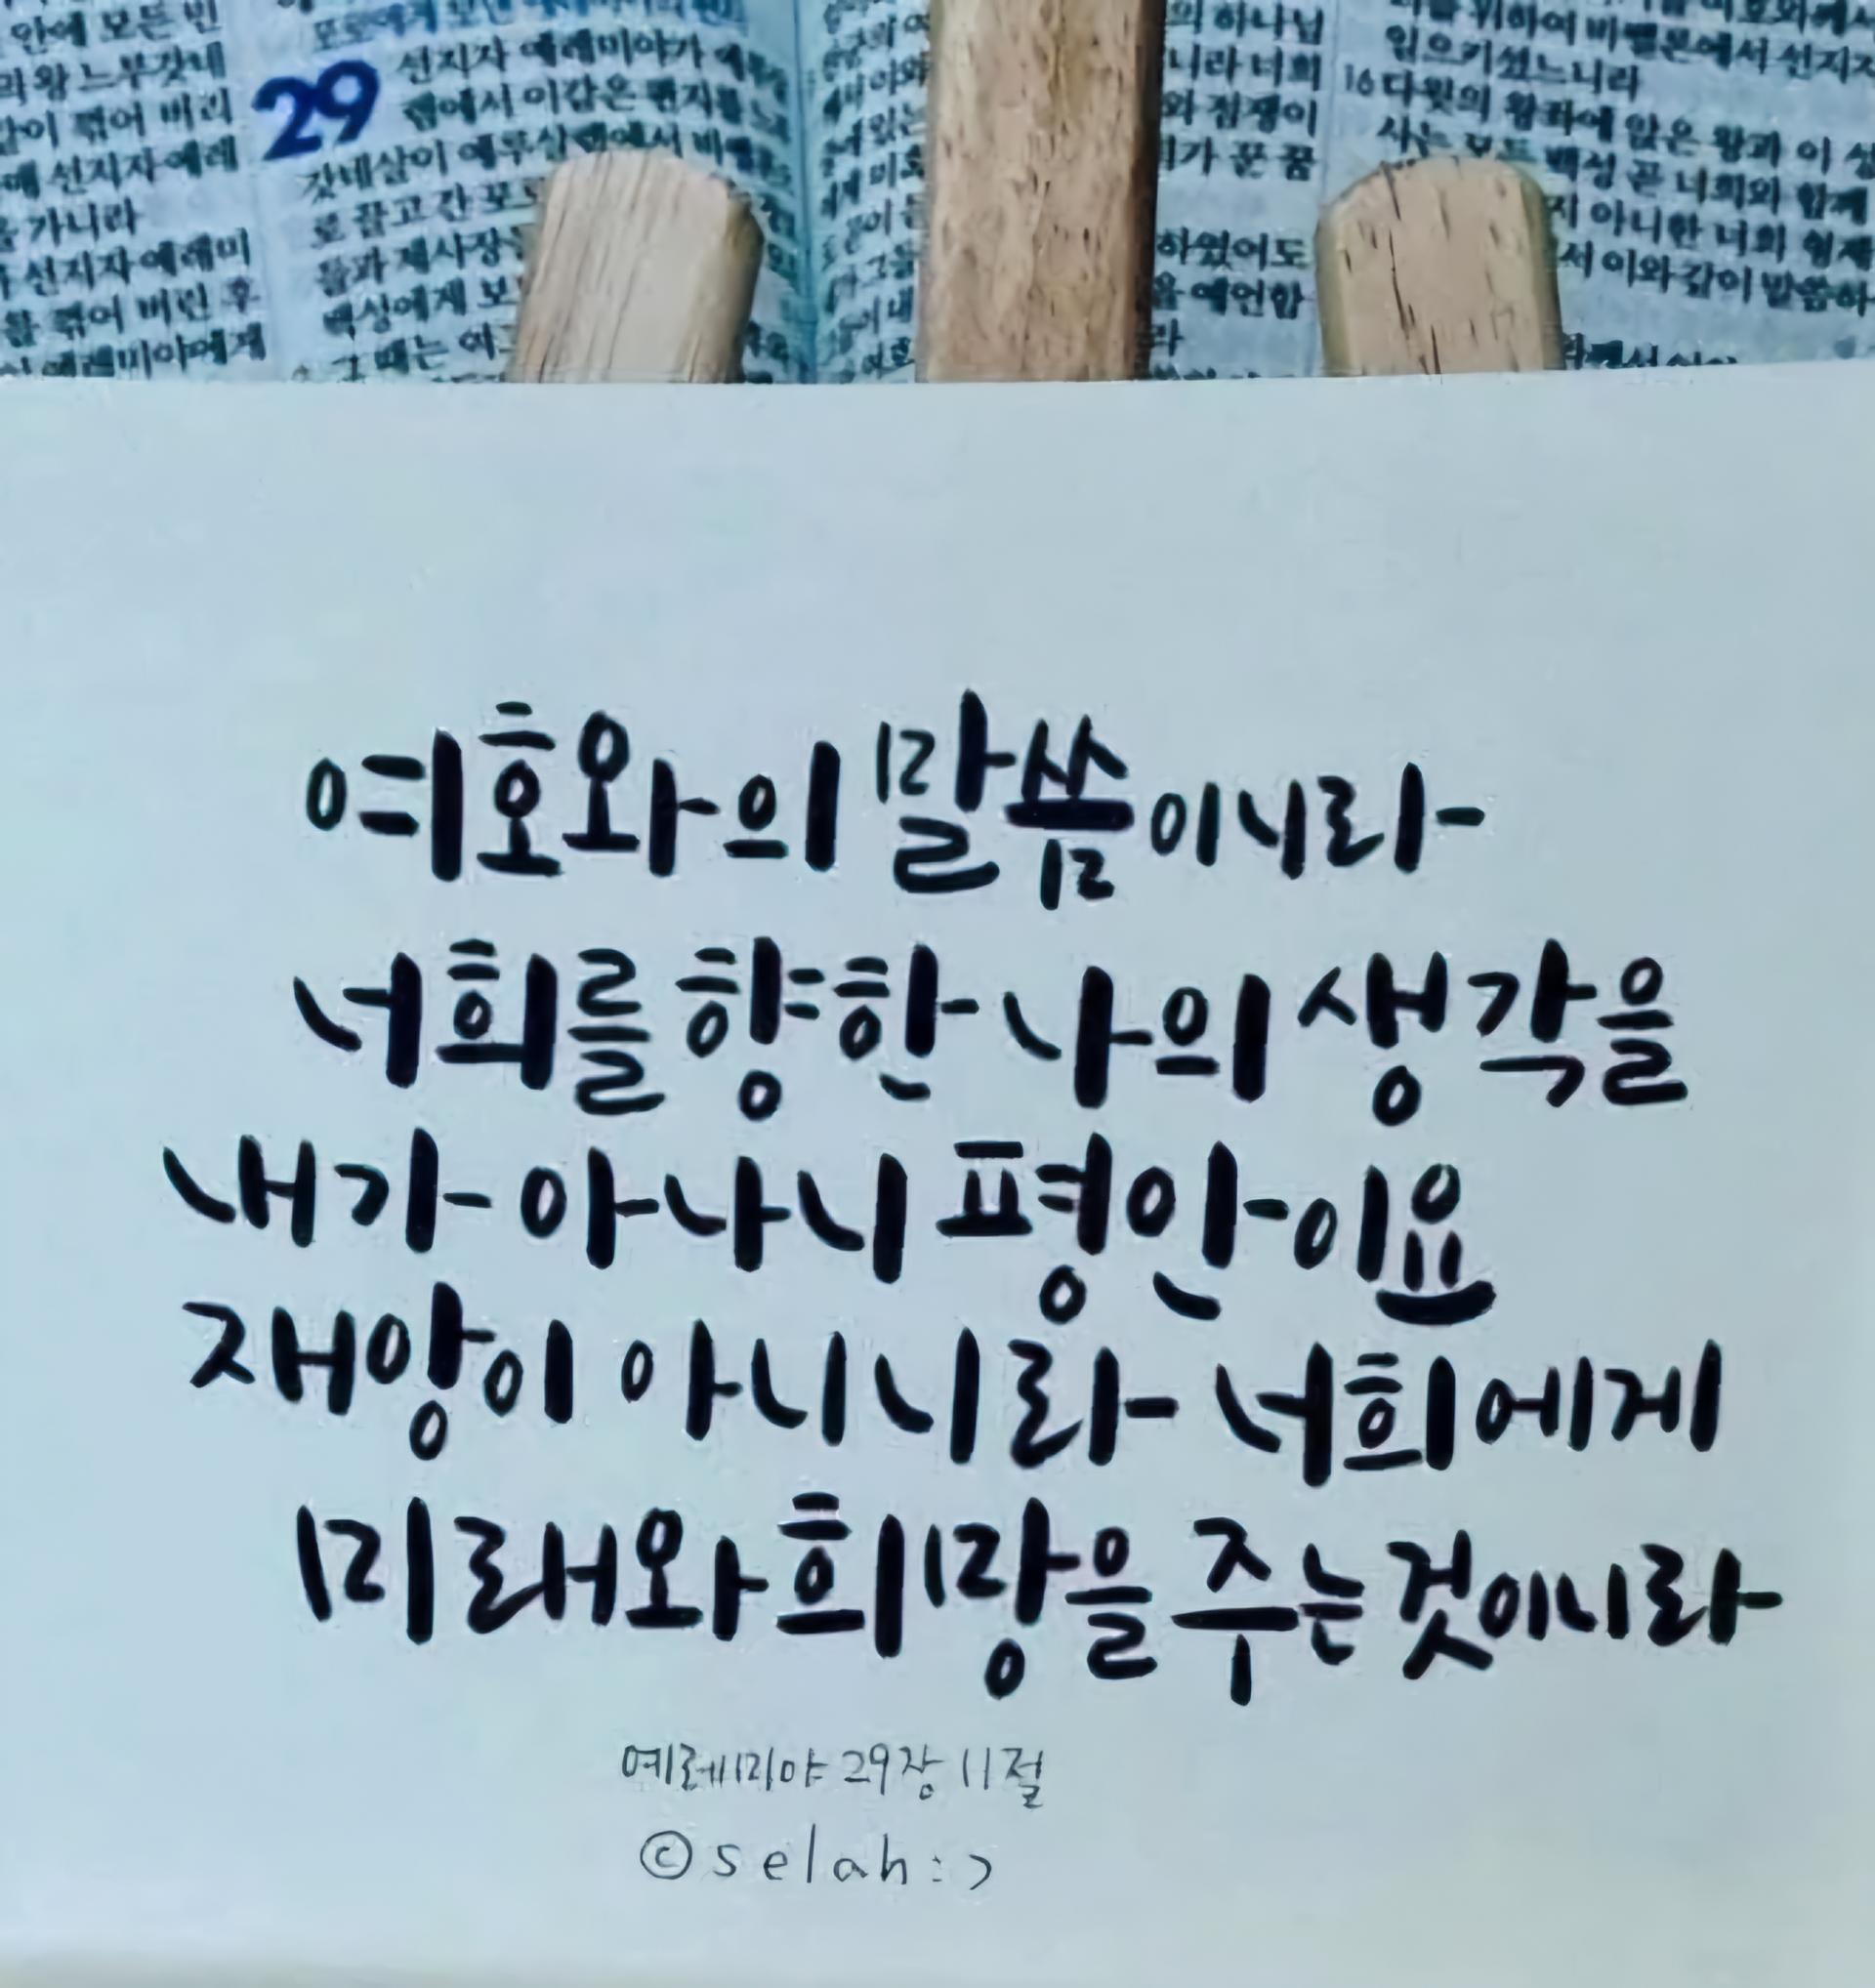 안에 모든 빈
의 왕 느부갓네
같이 꺾어 버리
매 선지자 예레
을 가니라
선지자 예레미
를 꺾어 버린 후
예레미야에게
29 선지자 예레미야가
렘에서 이같은 편지를
갓네살이 예루살렘에서
로 끌고 간 포
들과 제사장
백성에게 보
그 때는 여
의 하나님
니라 너희
와 점쟁이
가 꾼 꿈
하였어도
을 예언함
라
위하여 바벨론에서 선지자
일으키셨느니라
16 다윗의 왕좌에 앉은 왕과 이 성
사는 모든 백성 곧 너희와 함께
지 아니한 너희 형제
서 이와 같이 말씀하
여호와의 말씀이니라
너희를 향한 나의 생각을
내가 아나니 평안이요
재앙이 아니니라 너희에게
미래와 희망을 주는 것이니라
예레미야 29장 11절
©selah:>